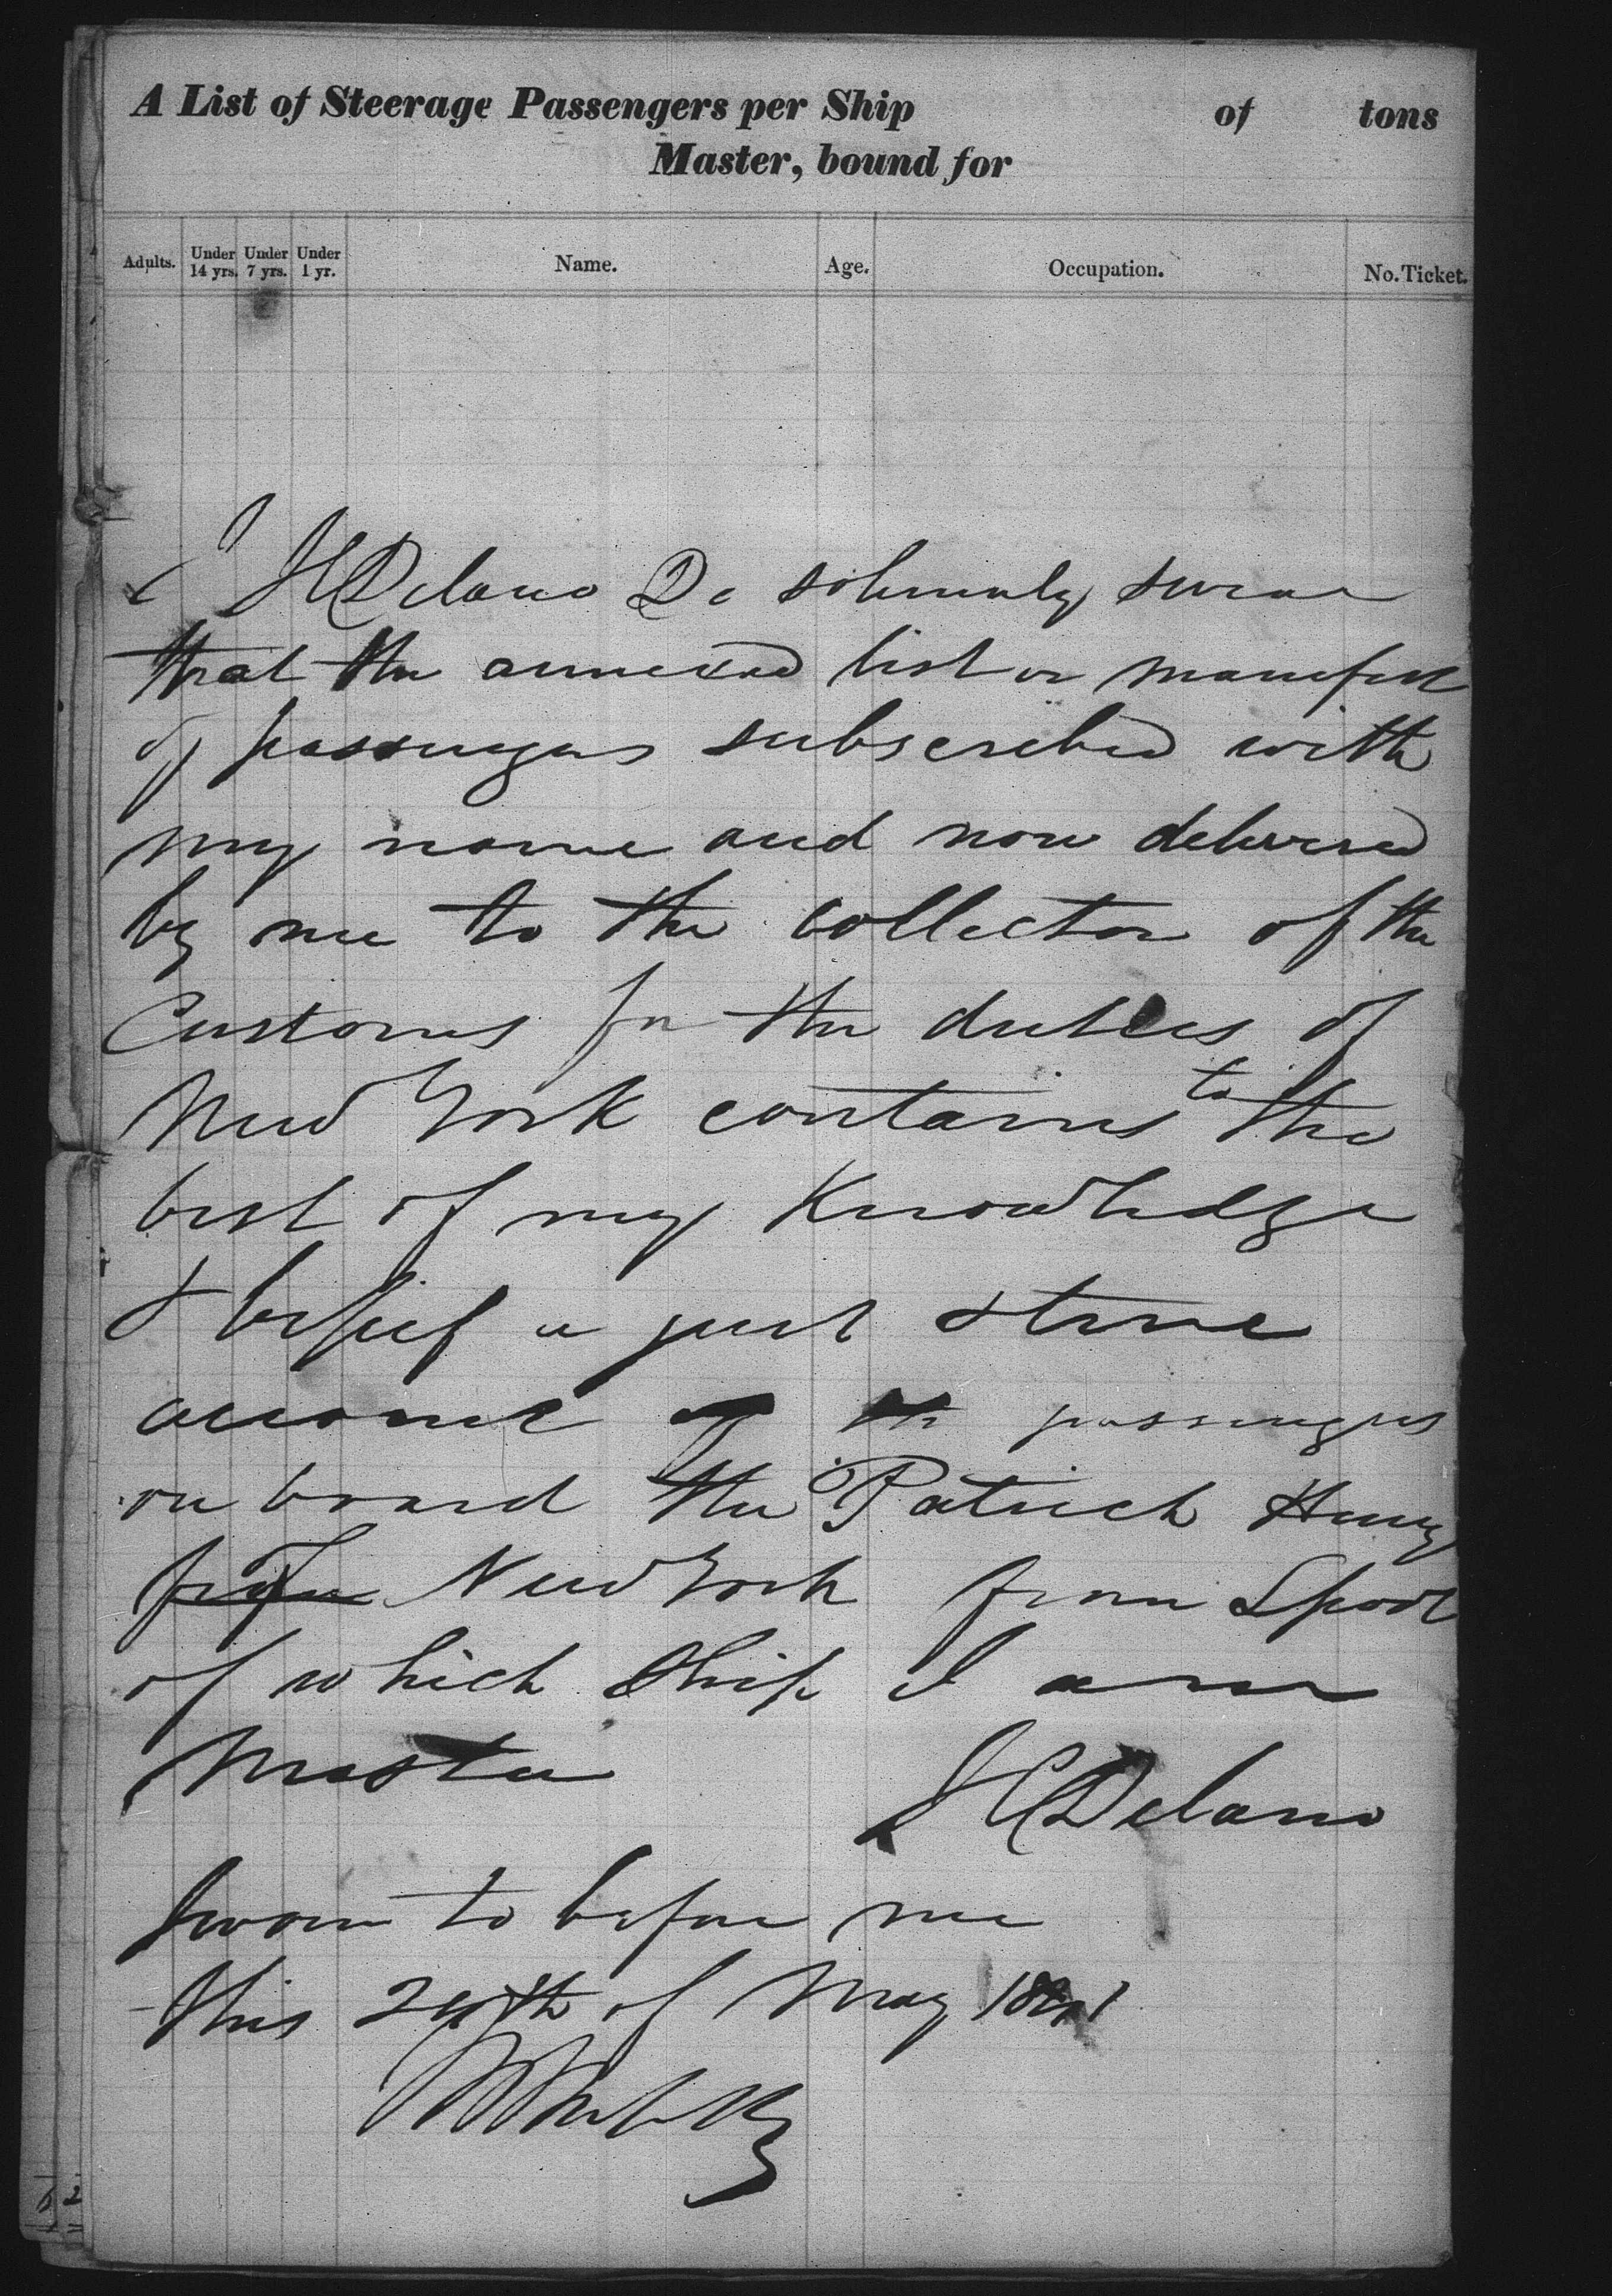 A List of Steerage Passengers per Ship of tons
Master, bound for
Adults. Under 14 yrs. Under 7 yrs. Under 1 yr. Name. Age. Occupation. No. Ticket.
I J C Delano Do solemnly swear
that the annexed list or manifest
of passengers subscribed with
my name and now delivered
by me to the Collector of the
Customs for the duties of
New York contains to the
best of my Knowledge
& belief a just & true
account of the passengers
on board the Patrick Henry
New York from Lpool
of which Ship I am
Master
J C Delano
Sworn to before me
this 24th of May 1841